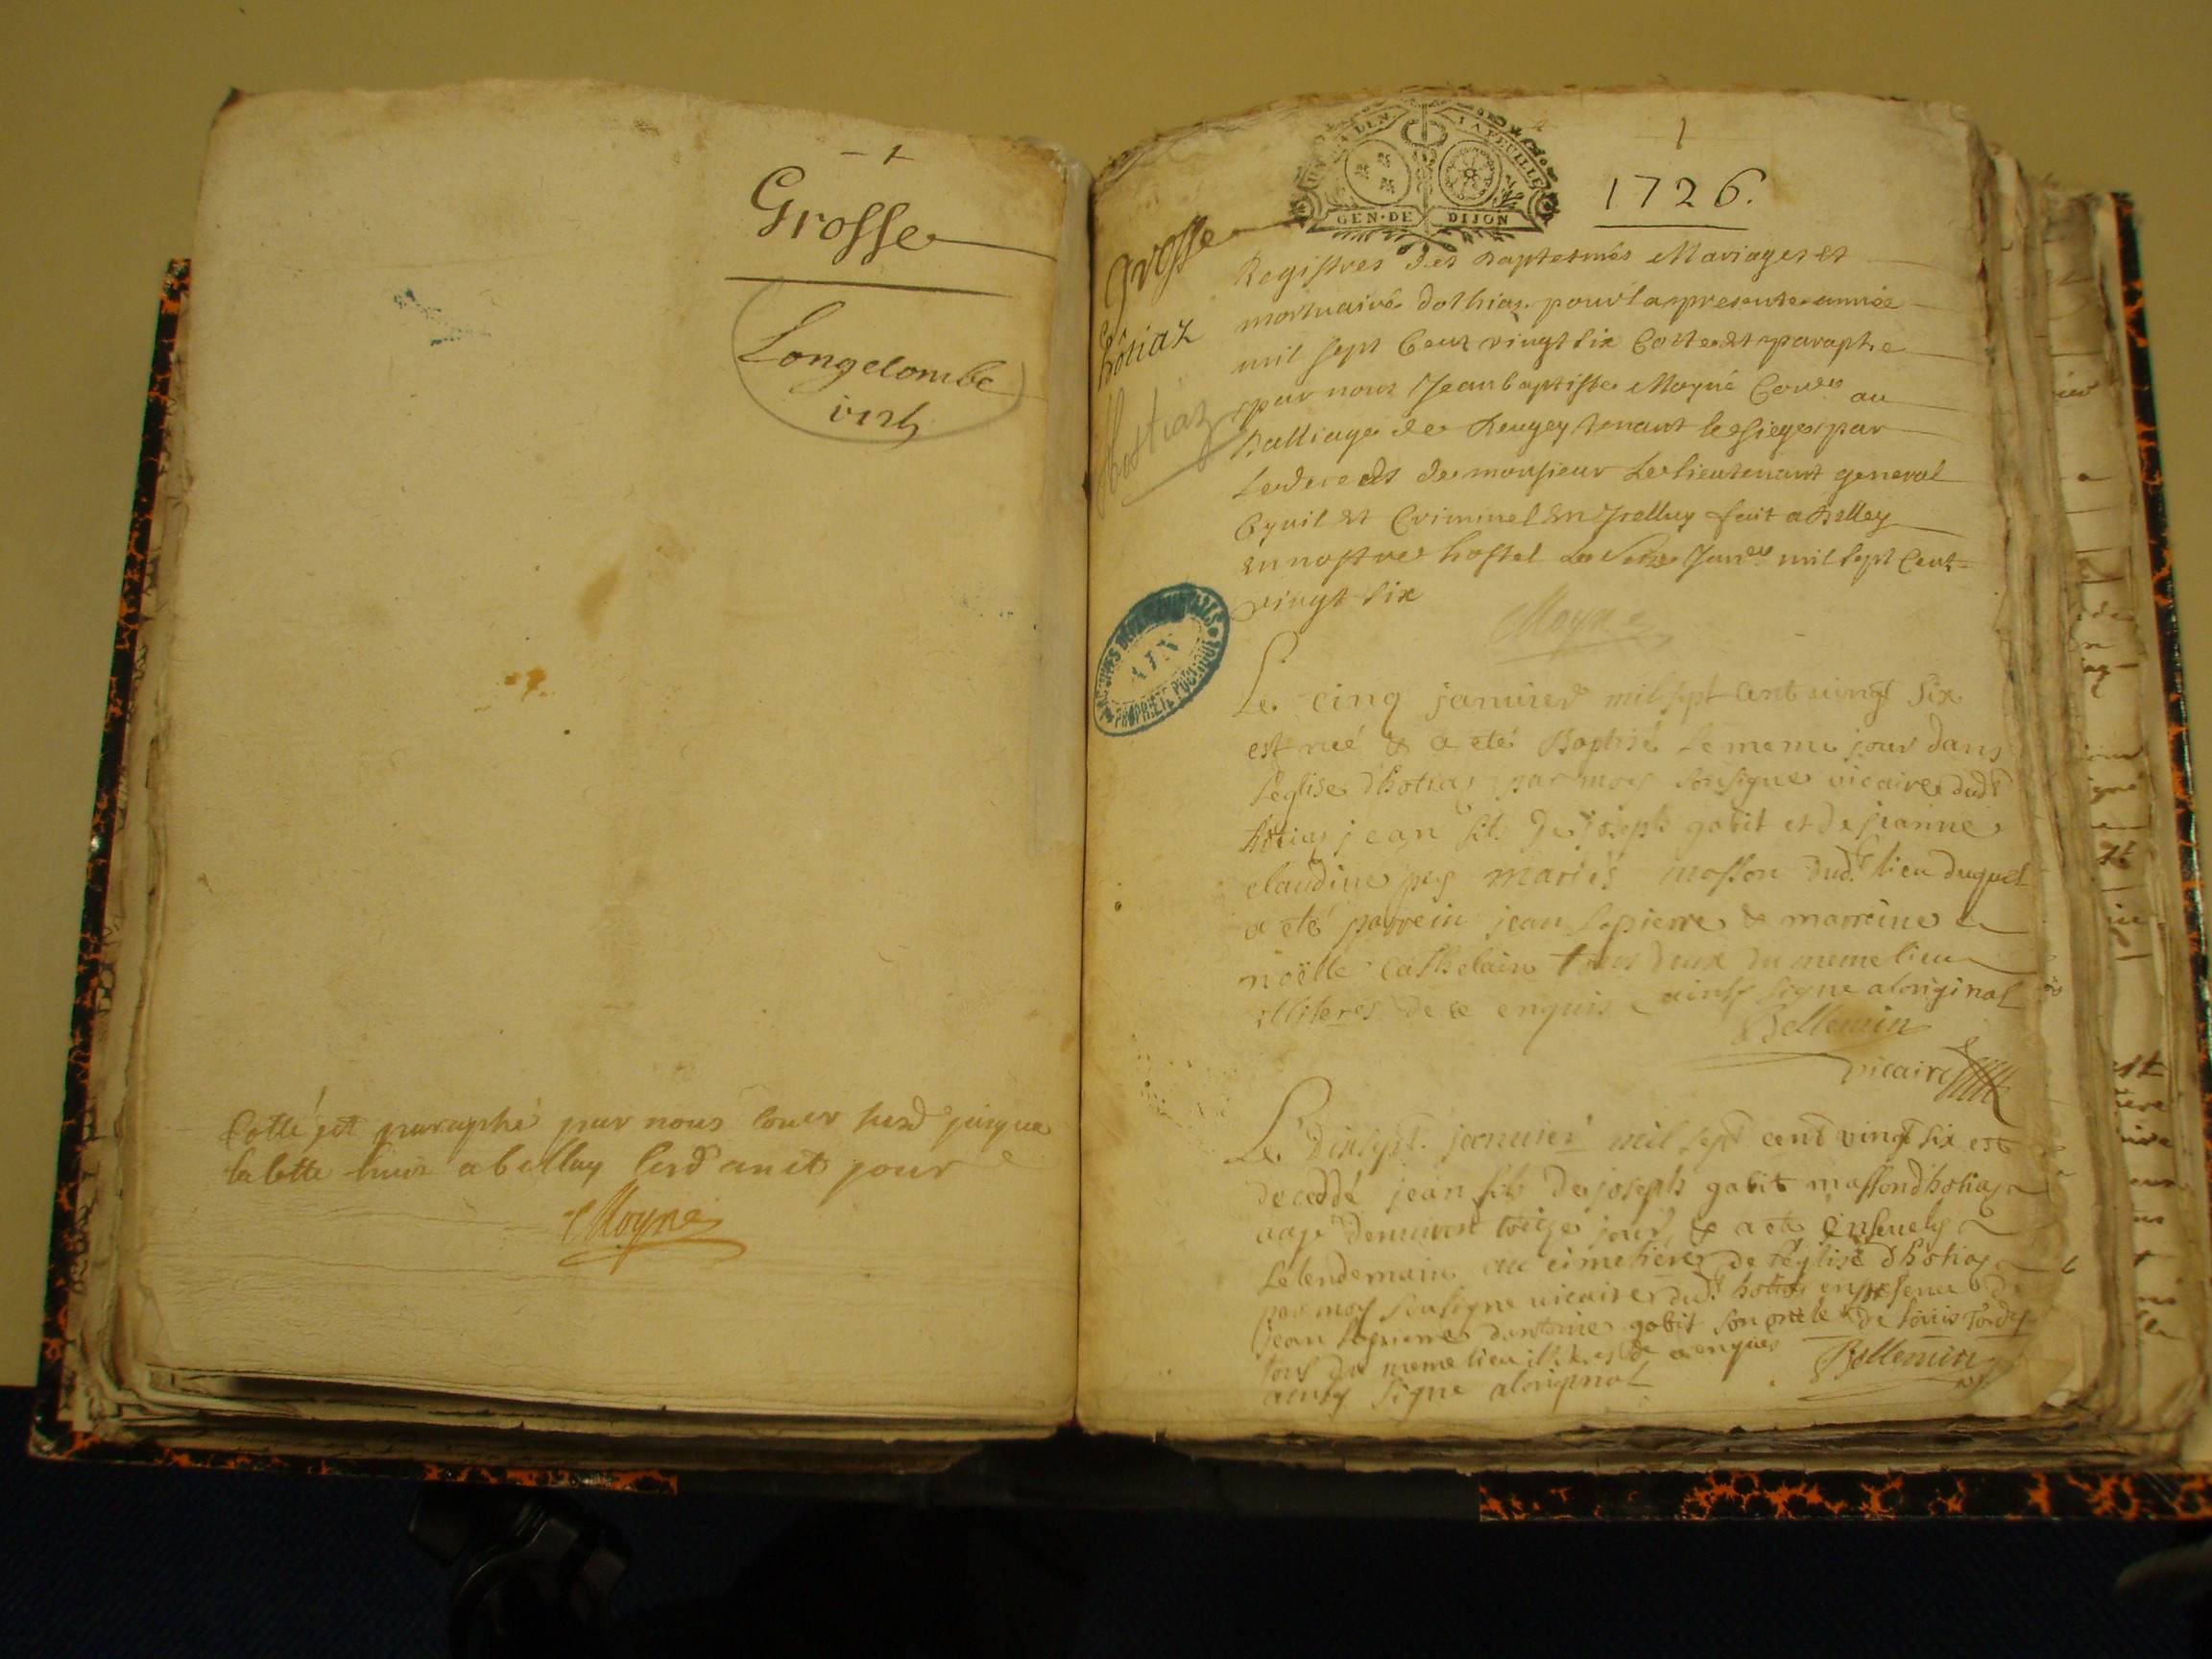 1
Grosse
Longecombe
Cotté et paraphé par nous soussd jusque
la cotte huit a belley lesd an et jour
Moyne
LA FEUILLE
GEN·DE DIJON
1
1726.
Grosse
hôtiaz
hostiaz
ARCHIVES DÉPARTEMENTALES
AIN
PROPRIÉTÉ PUBLIQUE
Registres des Baptesmes Mariages et
mortuaire dothiaz pour la presente année
mil sept Cent vingt six Cotte et paraphe
par nous Jean baptiste Moyne Conser au
Balliage de Beugey tenant le siege par
de monsieur Le lieutenant general
Cyuil et Criminel En Icelluy fait a Belley
En nostre hostel Le Janer mil sept Cent
vingt six
Moyne
Le cinq januier mil sept cent vingt six
est neé & a eté Baptisé le meme jour dans
l'eglise d'hotiaz par moy soussigne vicaire dudt
hotiaz jean fils de joseph gobit et de jeanne
claudine mariés masson dudt lieu duquel
a eté parrein jean lapierre & marreine
noëlle tous deux du meme lieu
illiteres de ce enquis ainsy signe a loriginal
Bellemin
vicaire
Le dixsept januier mil sept cent vingt six est
deceddé jean fils de joseph gobit masson d'hotiaz
aagé denuiron treize jours & a eté enseuely
le lendemain au cimetiere de l'église d'hotiaz
par moy soussigne vicaire dudt hotiaz en presence de
jean lapierre dantoine gobit son oncle & de loüis
tous du meme lieu illiteres de ce enquis
ainsy signe a loriginal Bellemin